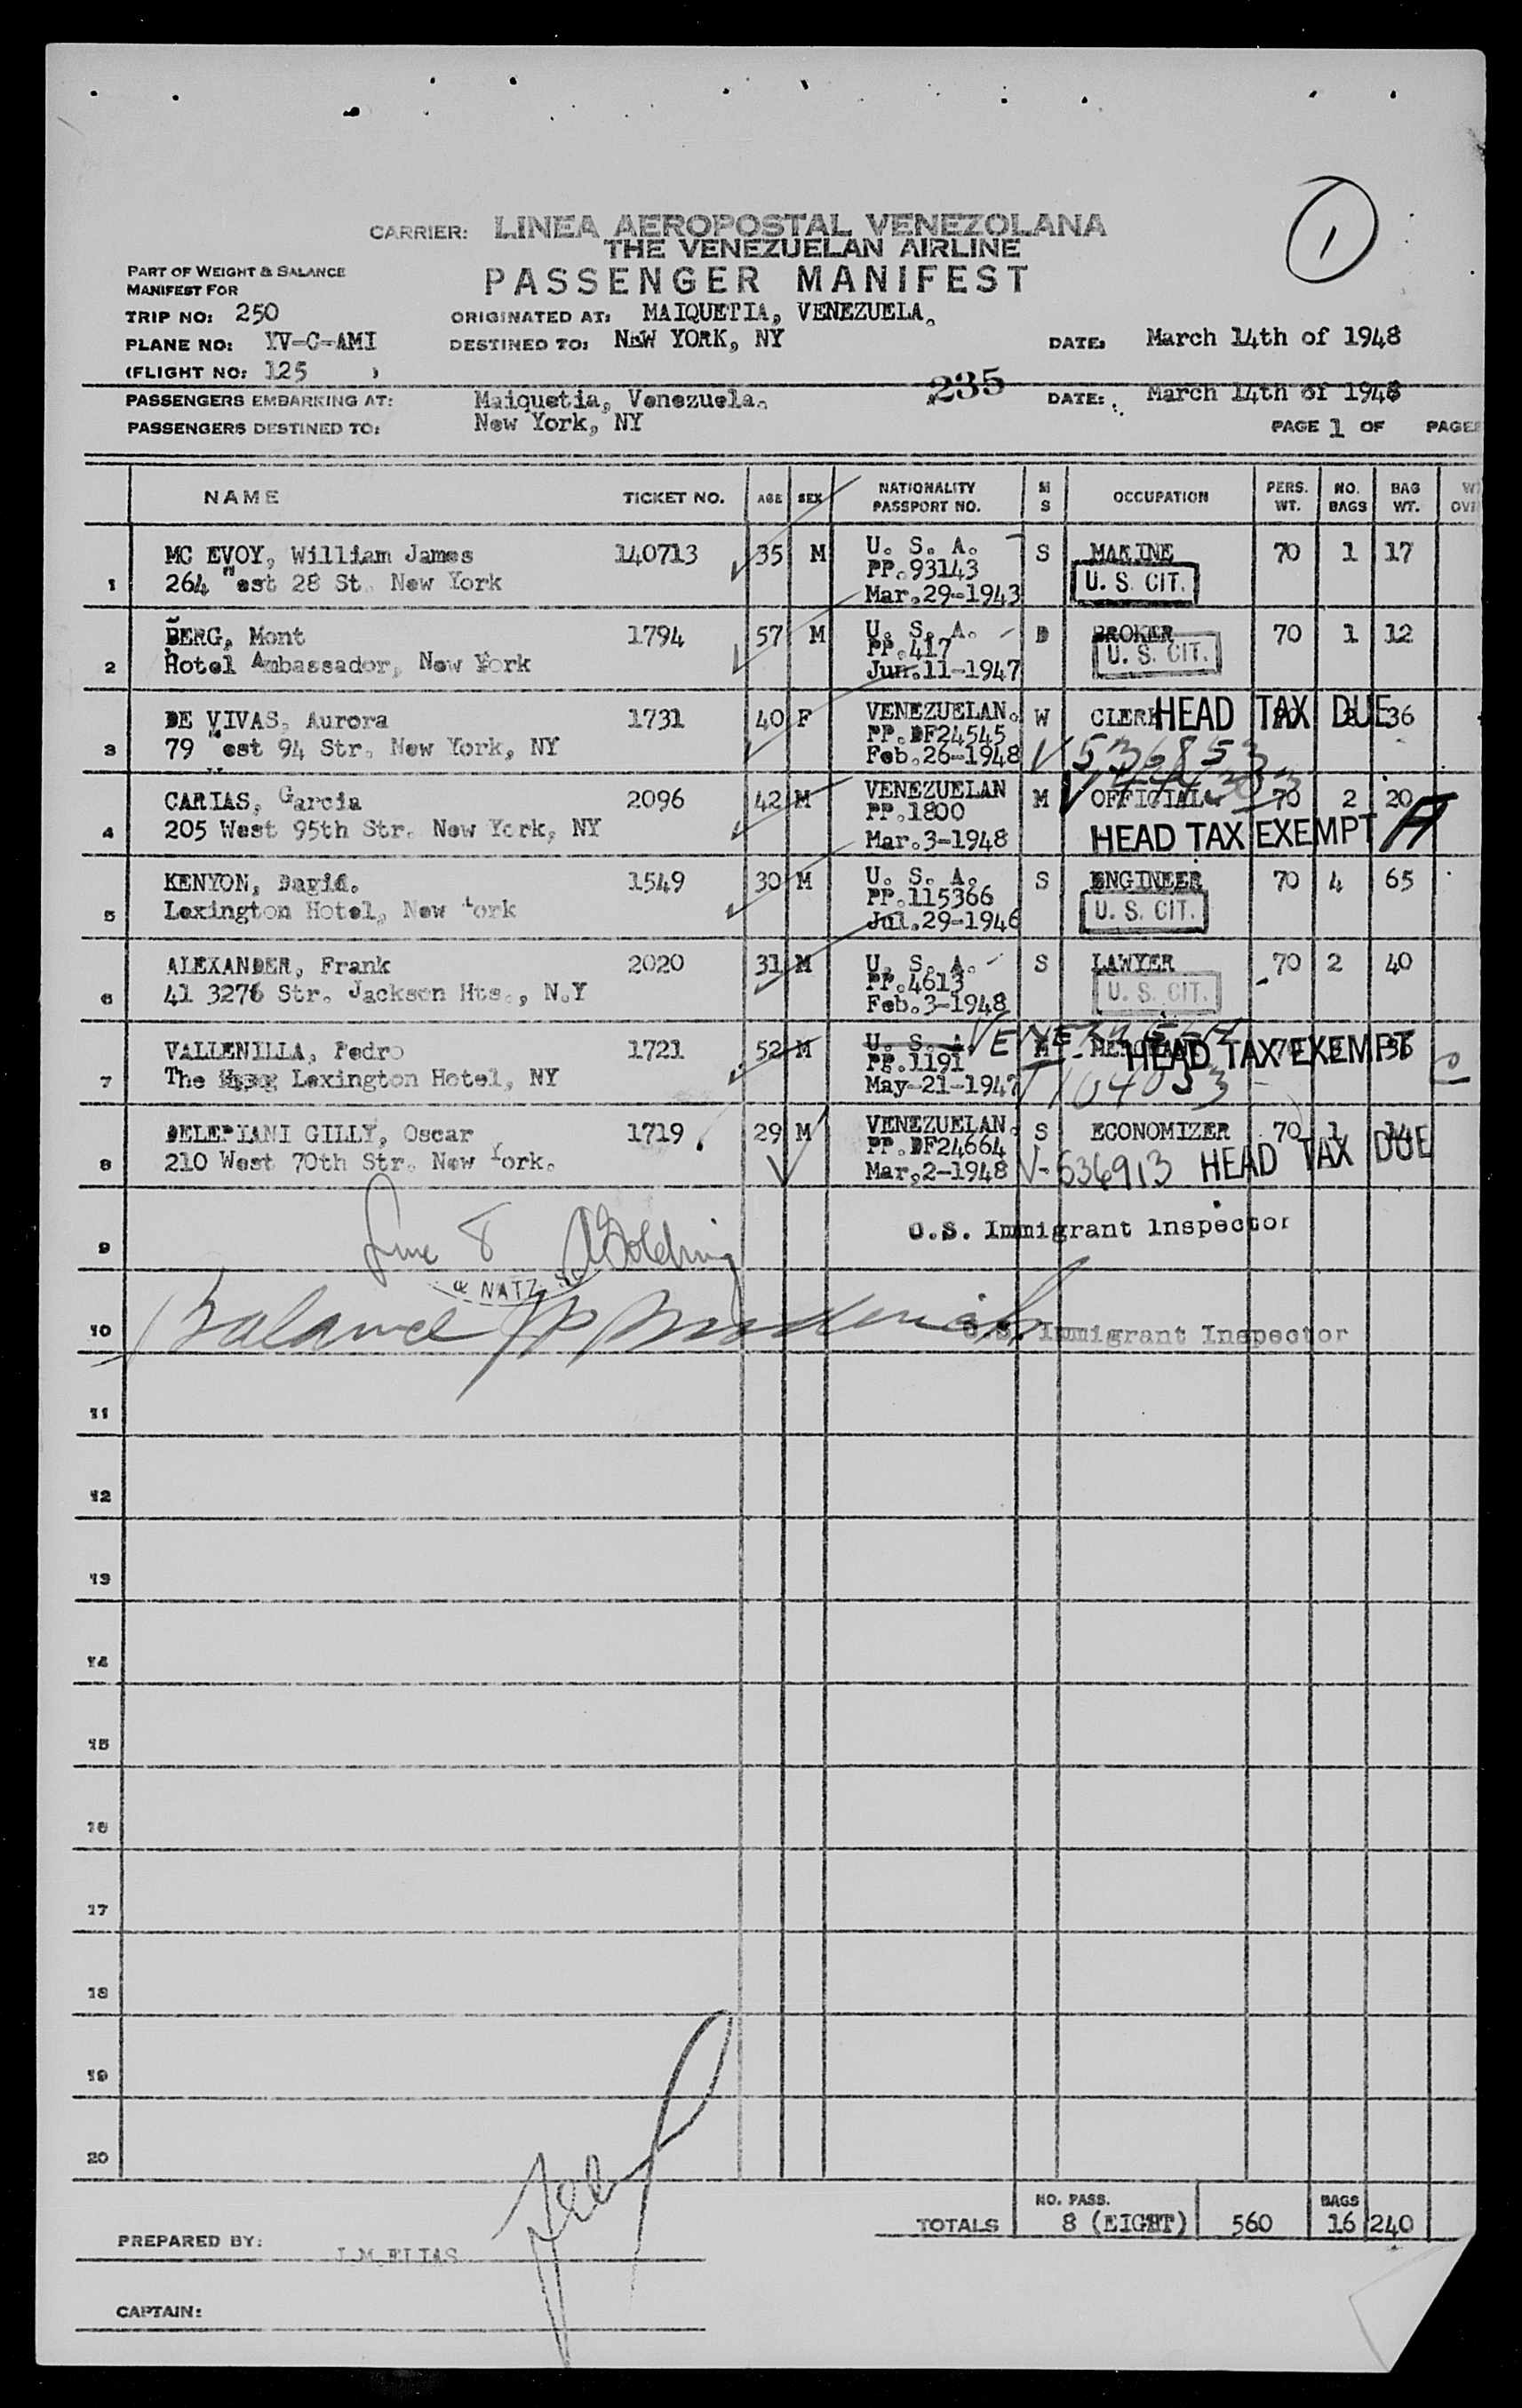 1
CARRIER: LINEA AEROPOSTAL VENEZOLANA
THE VENEZUELAN AIRLINE
PART OF WEIGHT & BALANCE
MANIFEST FOR
PASSENGER MANIFEST
TRIP NO: 250 ORIGINATED AT: MAIQUETIA, VENEZUELA.
PLANE NO: YV-C-AMI DESTINED TO: NEW YORK, NY DATE: March 14th of 1948
(FLIGHT NO: 125 )
235
PASSENGERS EMBARKING AT: Maiquetia, Venezuela. DATE: March 14th of 1948
PASSENGERS DESTINED TO: New York, NY PAGE 1 OF PAGES
NAME TICKET NO. AGE SEX NATIONALITY PASSPORT NO. M S OCCUPATION PERS. WT. NO. BAGS BAG WT.
MC EVOY, William James 140713 35 M U. S. A. S MARINE 70 1 17
PP.93143
1 264 West 28 St. New York Mar.29-1943 U. S. CIT.
BERG, Mont 1794 57 M U. S. A. D BROKER 70 1 12
PP.417
2 Hotel Ambassador, New York Jun.11-1947 U. S. CIT.
DE VIVAS, Aurora 1731 40 F VENEZUELAN. W CLERK HEAD TAX DUE 36
PP.DF24545
3 79 West 94 Str. New York, NY Feb.26-1948 V 536853
CARIAS, Garcia 2096 42 M VENEZUELAN M OFFICIAL 70 2 20
PP.1800
4 205 West 95th Str. New York, NY Mar.3-1948 HEAD TAX EXEMPT A
KENYON, David. 1549 30 M U. S. A. S ENGINEER 70 4 65
PP.115366
5 Lexington Hotel, New York Jul.29-1946 U. S. CIT.
ALEXANDER, Frank 2020 31 M U. S. A. S LAWYER 70 2 40
PP.4613
6 41 3276 Str. Jackson Hts., N.Y Feb.3-1948 U. S. CIT.
VALLENILLA, Pedro 1721 52 M U. S. A. VENEZUELA M HEAD TAX EXEMPT 36
PP.1191
7 The Lexington Hotel, NY May-21-1947 V 104053
DELEPIANI GILLY, Oscar 1719 29 M VENEZUELAN. S ECONOMIZER 70 1 14
PP.DF24664
8 210 West 70th Str. New York. Mar.2-1948 V-536913 HEAD TAX DUE
9 Line 8 Golding U.S. Immigrant Inspector
& NATZ
10 Balance U.S. Immigrant Inspector
11
12
13
14
15
16
17
18
19
20
NO. PASS. BAGS
TOTALS 8 (EIGHT) 560 16 240
PREPARED BY: J.M.ELIAS
CAPTAIN: